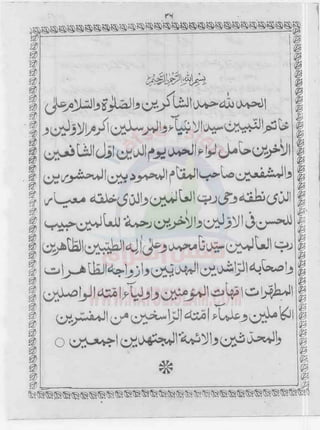 ٣٦
بسم الله الرحمن الرحيم
الحمد لله حمد الشاكرين والصلوة والسلام على
خاتم النبيين سيد الانبياء والمرسلين اكرم الاولين و
الأخرين حامل لواء الحمد يوم الدين اول الشافعين
والمشفعين صاحب المقام المحمود بين المحشورين
الذى نطقه وحى رب العالمين والذى خلقه معيار
للحسن فى الاولين والأخرين رحمة للعالمين حبيب
رب العالمين سيدنا محمد وعلى آله الطيبين الطاهرين
واصحابه الراشدين المهديين وازواجه الطاهرات
المطهرات امهات المؤمنين واولياء امته الواصلين
الكاملين وعلماء امته الراسخين من المفسرين
والمحدثين والائمة المجتهدين اجمعين ○